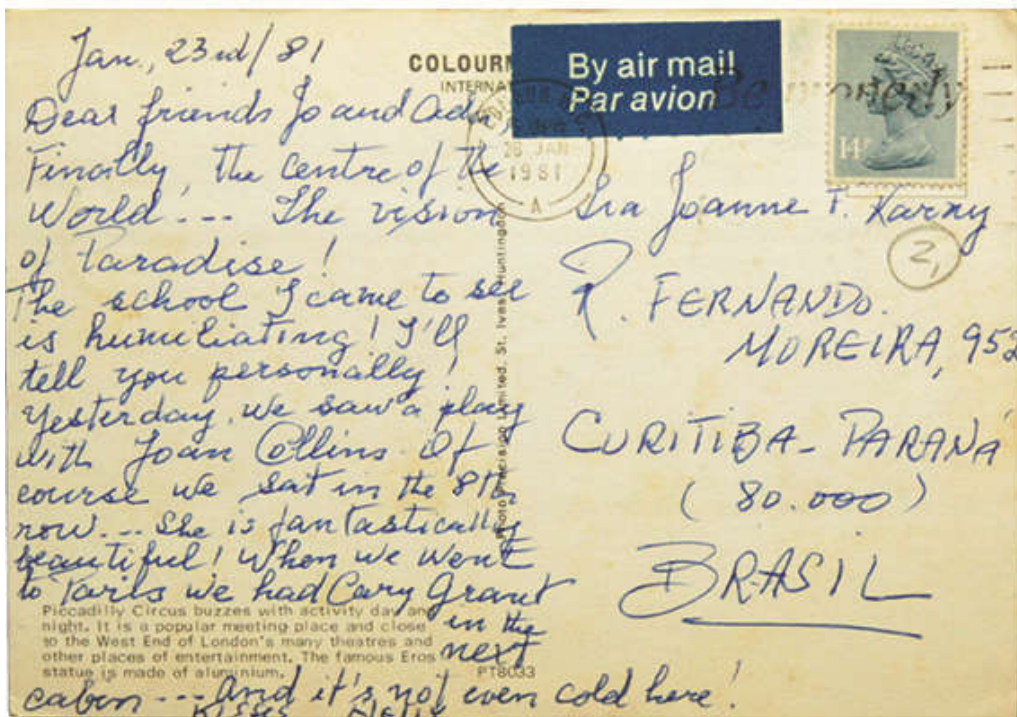 Jan, 23rd/81
Dear friends Jo and
Finally, the centre of the
World... The vision
of Paradise!
The school I came to see
is humiliating! I'll
tell you personally!
Yesterday, we saw a play
with Joan Collins. Of
course we sat in the 8th
row... She is fantastically
beautiful! When we went
to Paris we had Cary Grant
in the
next
cabin... And it's not even cold here!
COLOUR
INTERNAT
By air mail
Par avion
Be properly
26 JAN
1981
A
14
Sra Joanne F. Karny
2,
R. FERNANDO.
MOREIRA, 952
CURITIBA - PARANÁ
(80.000)
BRASIL
Photo Precision Limited, St. Ives, Huntingdon
Piccadilly Circus buzzes with activity day and
night. It is a popular meeting place and close
to the West End of London's many theatres and
other places of entertainment. The famous Eros
statue is made of aluminium.
PT8033